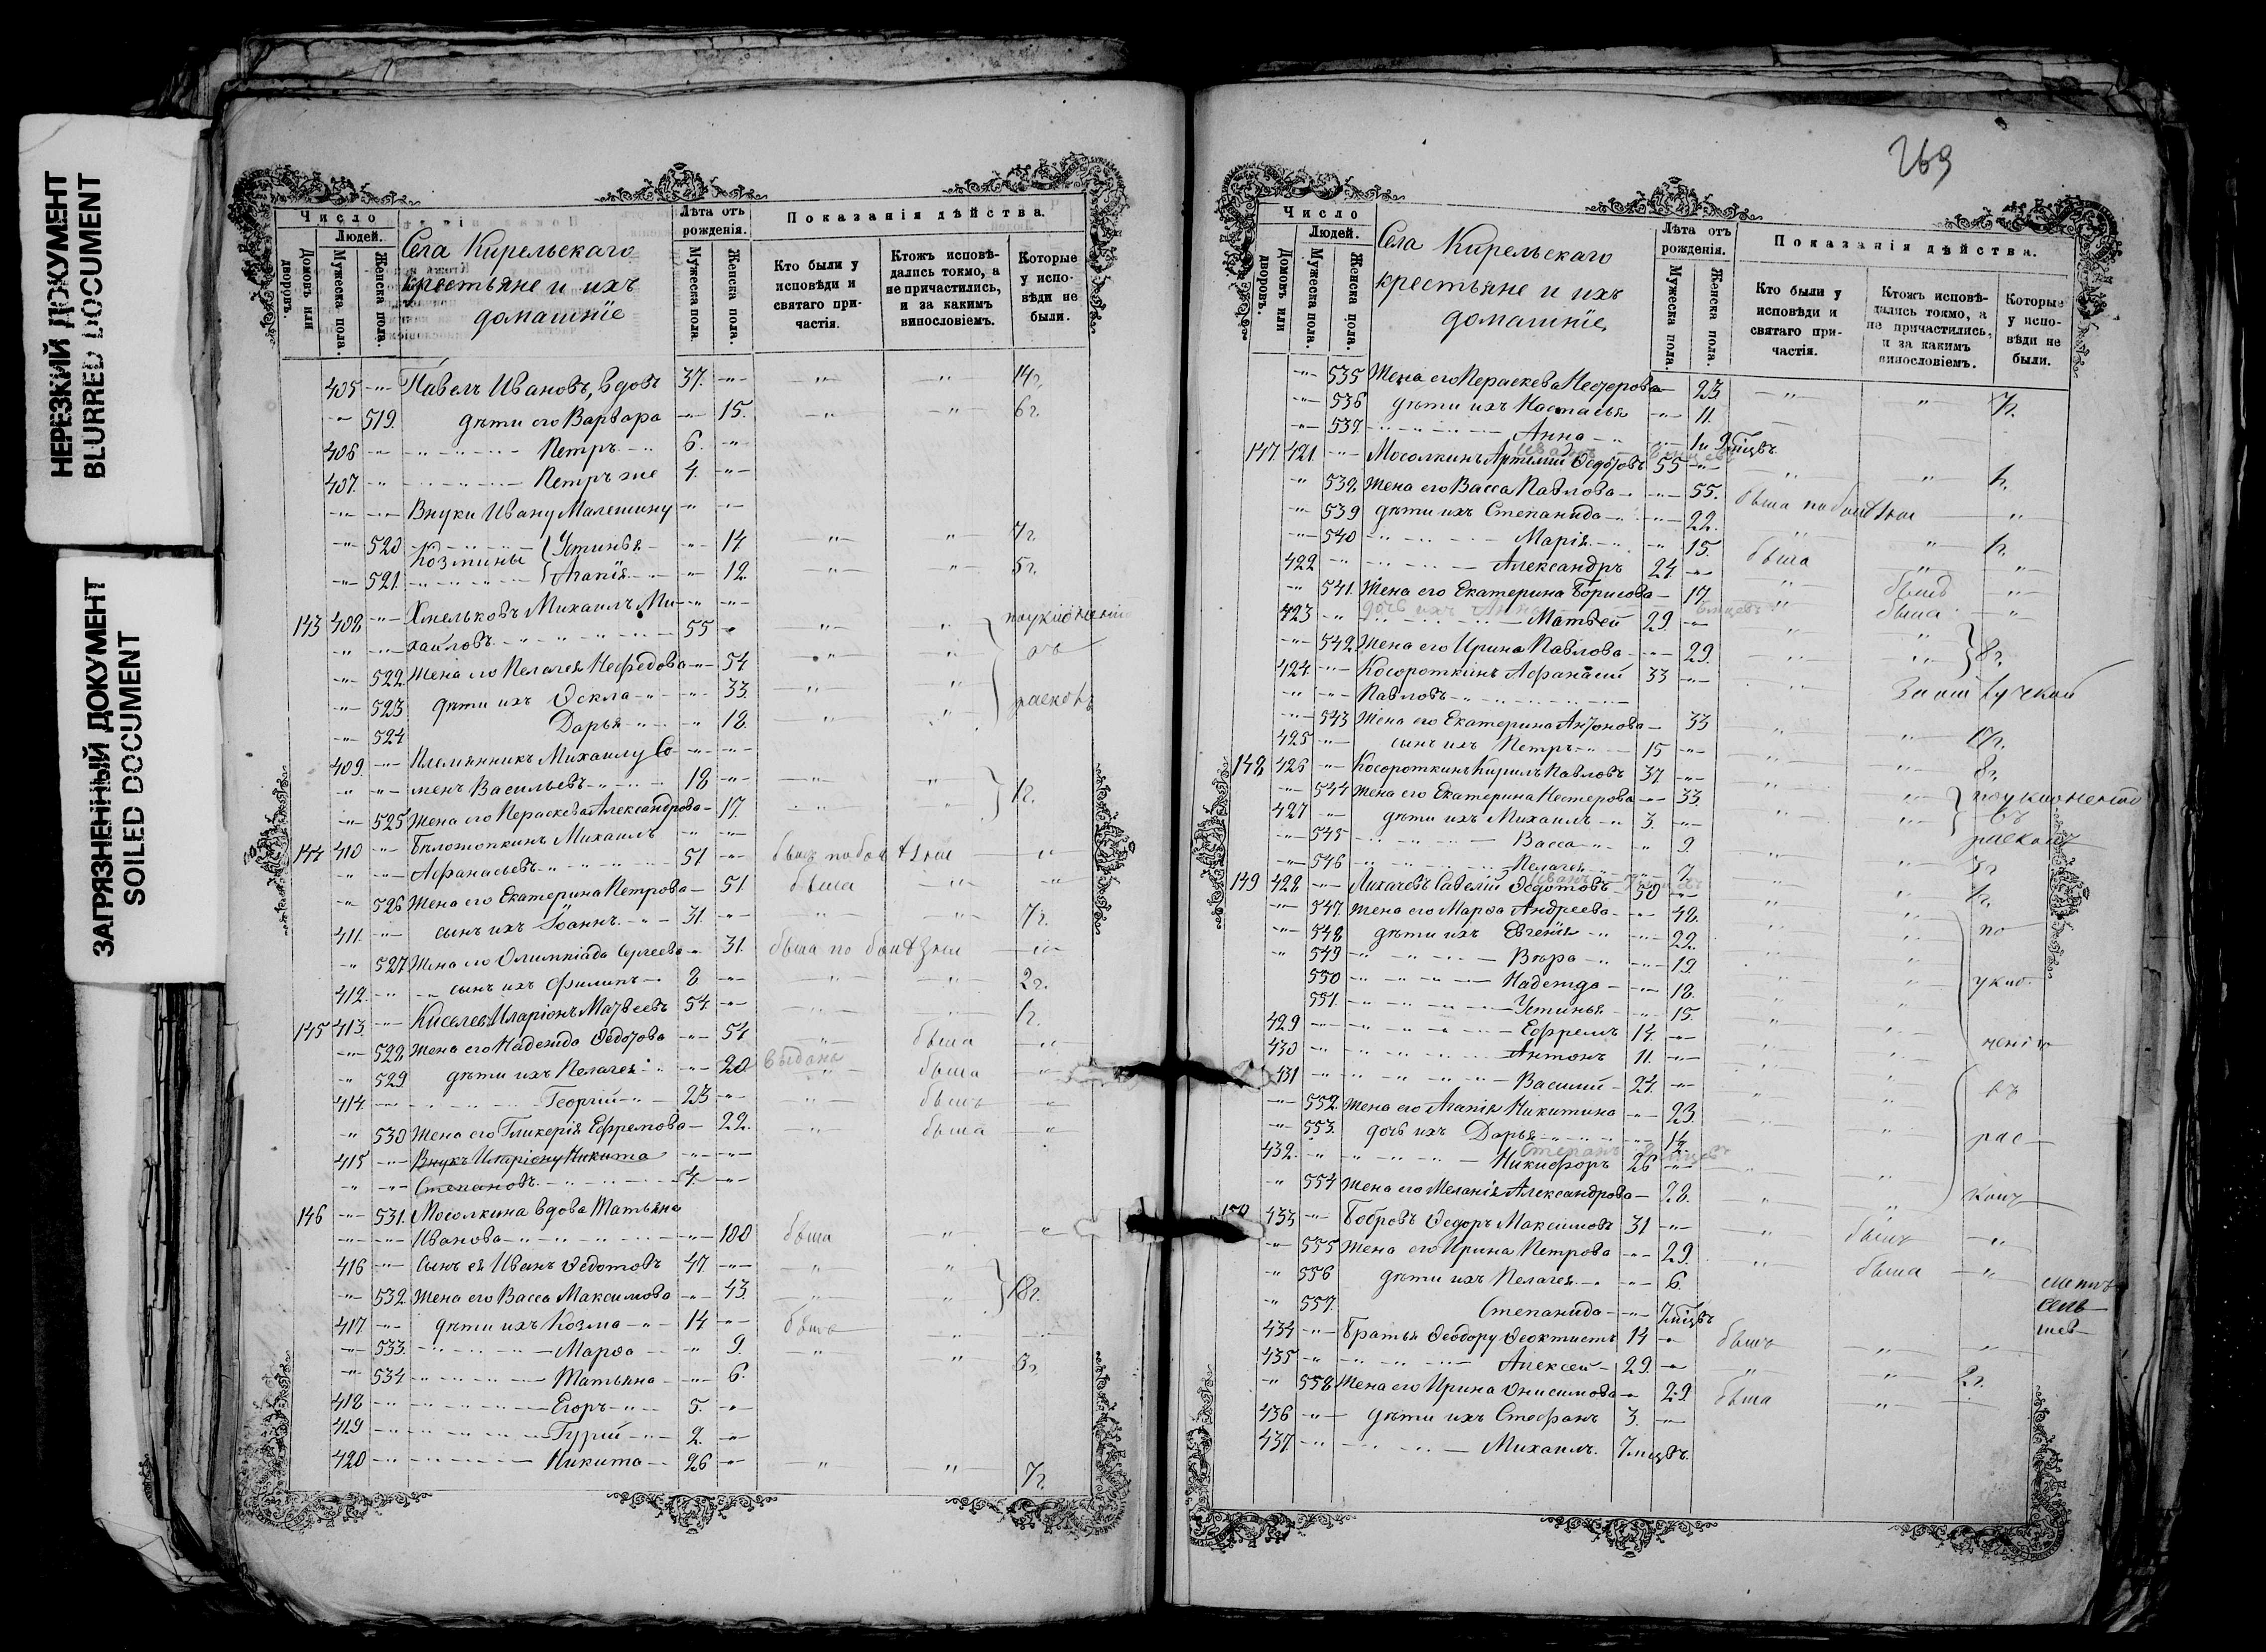 НЕРЕЗКИЙ ДОКУМЕНТ
BLURRED DOCUMENT
ЗАГРЯЗНЕННЫЙ ДОКУМЕНТ
SOILED DOCUMENT
Число
Людей.
Домовъ или дворовъ.
Мужеска пола.
Женска пола.
Села Кирельскаго
крестьяне и ихъ
домашніе
Лѣта отъ рожденія.
Мужеска пола.
Женска пола.
Показанія дѣйства.
Кто были у исповѣди и святаго причастія.
Ктожъ исповѣдались токмо, а не причастились, и за какимъ винословіемъ.
Которые у исповѣди не были.
405 Павелъ Ивановъ, вдовъ 37. 14 г.
519. дѣти его Варвара 15. 6 г.
406 Петръ 6.
407. Петръ же 4.
Внуки Ивану Малешину
520 Козмины Устинья 14. 7 г.
521. Агапія 12. 5 г.
143 408 Хмельковъ Михаилъ Ми-
хаиловъ 55
522 Жена его Пелагея Нефедова 54
523 дѣти ихъ Ѳекла 33.
524 Дарья 18.
409. Племянникъ Михаилу Се-
менъ Васильевъ 18
525 Жена его Пераскева Александрова 17. 1 г.
144 410 Бѣлотопкинъ Михаилъ
Афанасьевъ 51
526 Жена его Екатерина Петрова 51. была
411. сынъ ихъ Іоаннъ 31. 7 г.
527 Жена его Олимпіада Сергеева 31.
412. сынъ ихъ Филипъ 8 2 г.
145 413. Киселевъ Иларіонъ Матвеевъ 54. 1 г.
528 Жена его Надежда Ѳедотова 54 была
529 дѣти ихъ Пелагея 20 выдана была
414. Георгій 23 былъ
530 Жена его Гликерія Ефремова 22. была
415 Внукъ Иларіону Никита
Степановъ 4
146 531. Мосолкина вдова Татьяна
Иванова 100 была
416 Сынъ ея Иванъ Ѳедотовъ 47
532 Жена его Васса Максимова 43. 18 г.
417 дѣти ихъ Козма 14 былъ
533. Марѳа 9. 3 г.
534 Татьяна 6.
418 Егоръ 5.
419 Гурій 2.
420 Никита 26 7 г.
269
Число
Людей.
Домовъ или дворовъ.
Мужеска пола.
Женска пола.
Села Кирельскаго
крестьяне и ихъ
домашніе
Лѣта отъ рожденія.
Мужеска пола.
Женска пола.
Показанія дѣйства.
Кто были у исповѣди и святаго причастія.
Ктожъ исповѣдались токмо, а не причастились, и за какимъ винословіемъ.
Которые у исповѣди не были.
535 Жена его Пераскева Несторова 23 7 г.
536 дѣти ихъ Настасья 11.
537 Анна
147 421. Мосолкинъ Артемій Ѳедотовъ 55
538 Жена его Васса Павлова 55.
539 дѣти ихъ Степанида 22.
540 Марія 15. была
422 Александръ 24
541. Жена его Екатерина Борисова 17
423 Матвей 29.
542 Жена его Ирина Павлова 29. 8 г.
424. Косороткинъ Афанасій 33
Павловъ
543 Жена его Екатерина Антонова 33
425 сынъ ихъ Петръ 15
148 426 Косороткинъ Кирилъ Павловъ 37 8 г.
544 Жена его Екатерина Нестерова 33.
427 дѣти ихъ Михаилъ 3.
545 Васса 9.
546 Пелагея
149 428 Лихачевъ Савелій Ѳедотовъ 50
547. Жена его Марѳа Андреева 48.
548 дѣти ихъ Евгенія 22.
549 Вѣра 19.
550 Надежда 18.
551. Устинья 15.
429 Ефремъ 14.
430 Антонъ 11.
431 Василій 24.
552. Жена его Агапія Никитина 23.
553. дочь ихъ Дарья
432. Никифоръ 26
554 Жена его Меланія Александрова 28.
150 433 Бобровъ Ѳедоръ Максимовъ 31 былъ
555 Жена его Ирина Петрова 29. была
556 дѣти ихъ Пелагея 6.
557. Степанида 7 мцвъ
434 Братья Ѳеодору Ѳеоктистъ 14 былъ
435 Алексей 29. 2 г.
558 Жена его Ирина Онисимова 29 была
436 дѣти ихъ Стефанъ 3.
437 Михаилъ. 7 мцвъ.